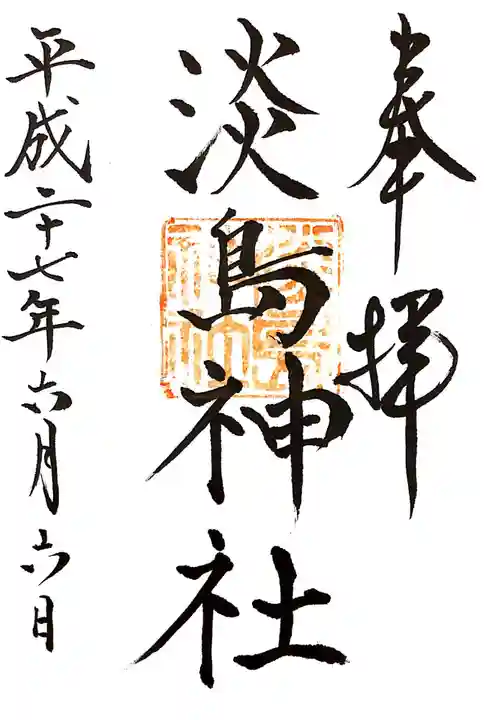 奉拝
淡島神社
平成二十七年六月六日